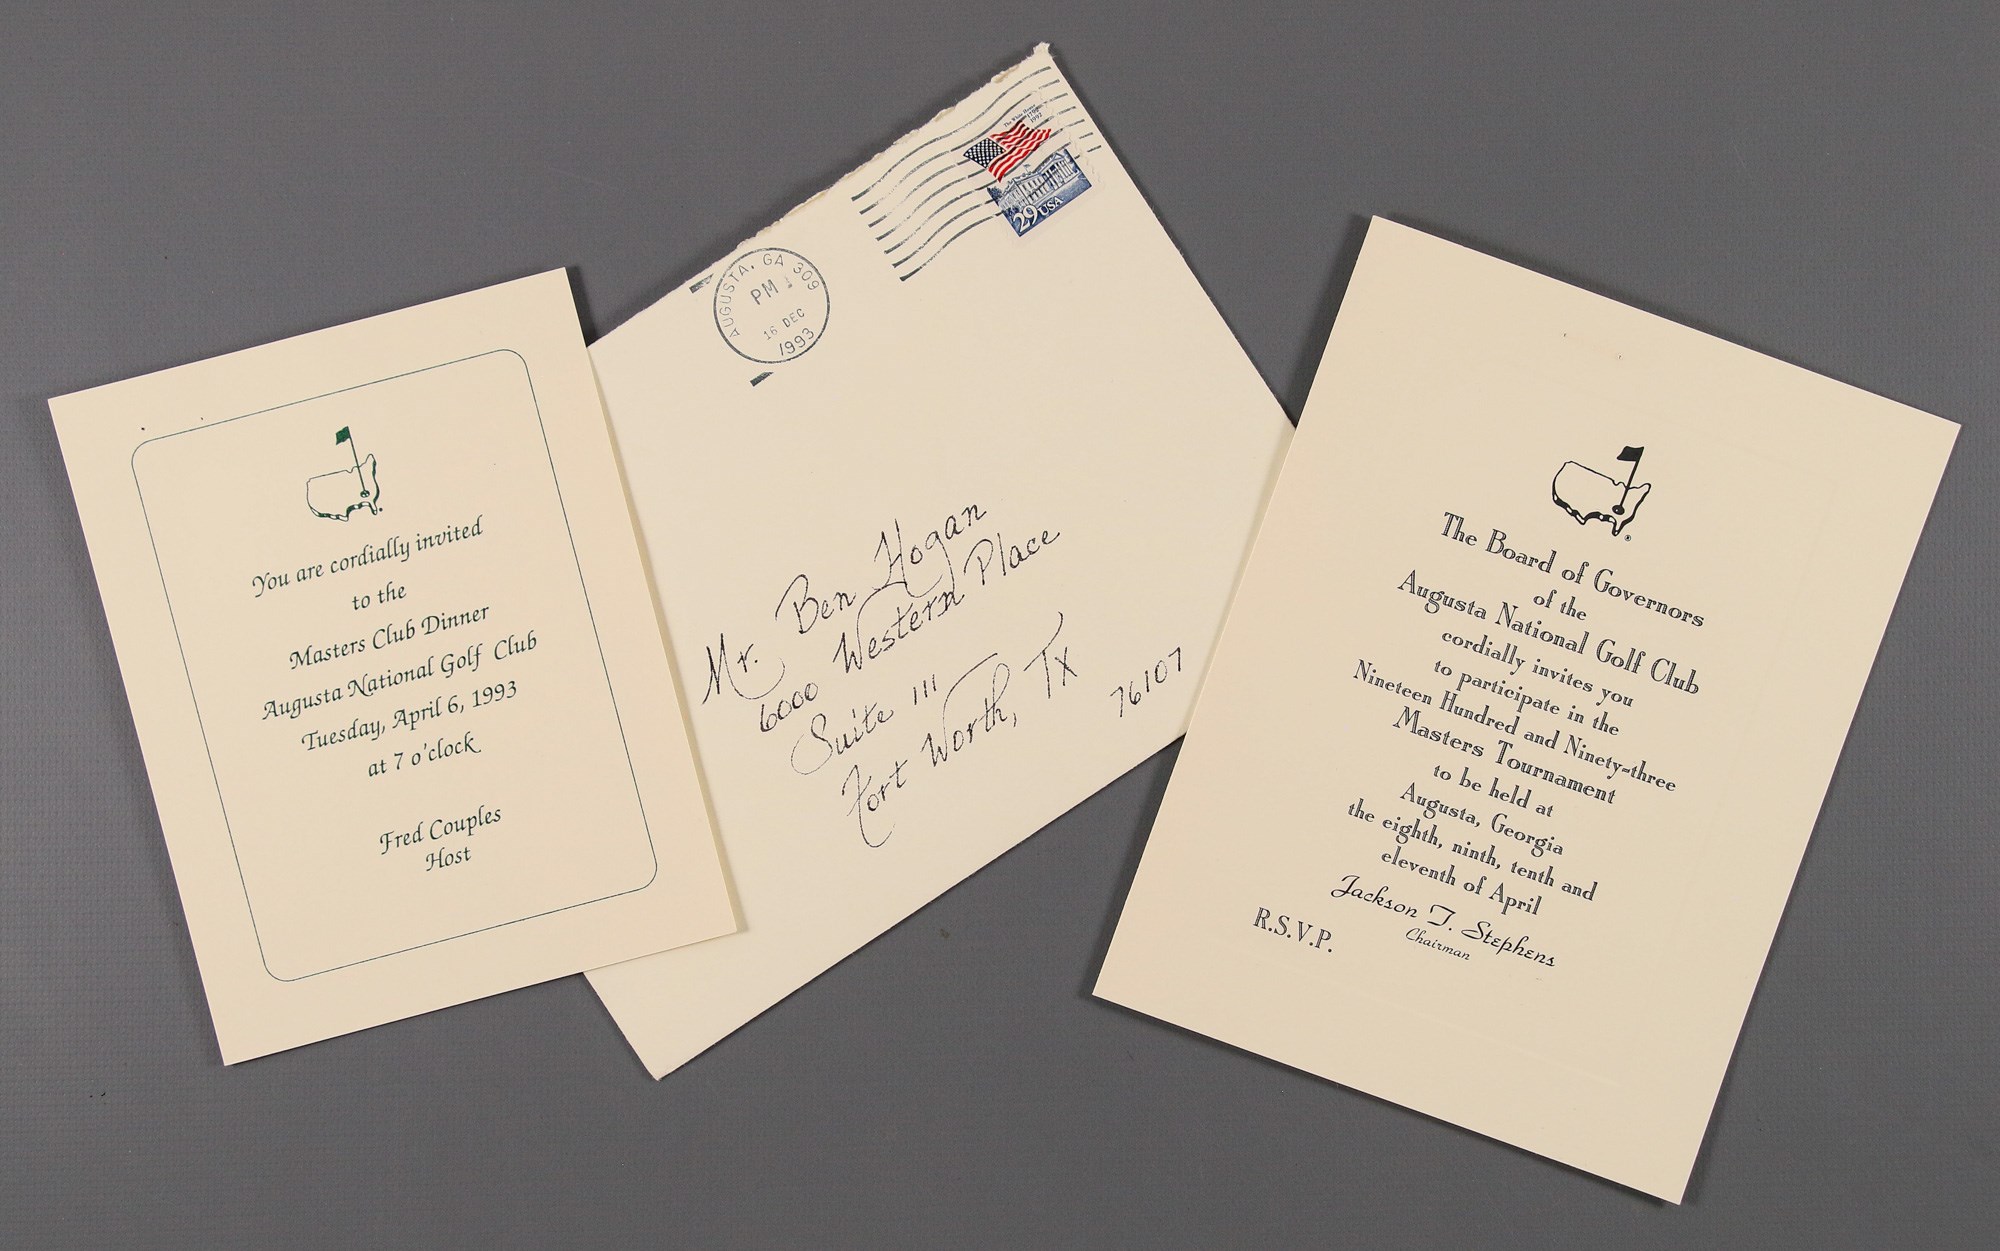 You are cordially invited
to the
Masters Club Dinner
Augusta National Golf Club
Tuesday, April 6, 1993
at 7 o'clock
Fred Couples
Host
AUGUSTA, GA 309
PM
16 DEC
1993
The White House
1792 1992
29 USA
Mr. Ben Hogan
6000 Western Place
Suite 111
Fort Worth, Tx
76107
The Board of Governors
of the
Augusta National Golf Club
cordially invites you
to participate in the
Nineteen Hundred and Ninety-three
Masters Tournament
to be held at
Augusta, Georgia
the eighth, ninth, tenth and
eleventh of April
Jackson T. Stephens
Chairman
R.S.V.P.